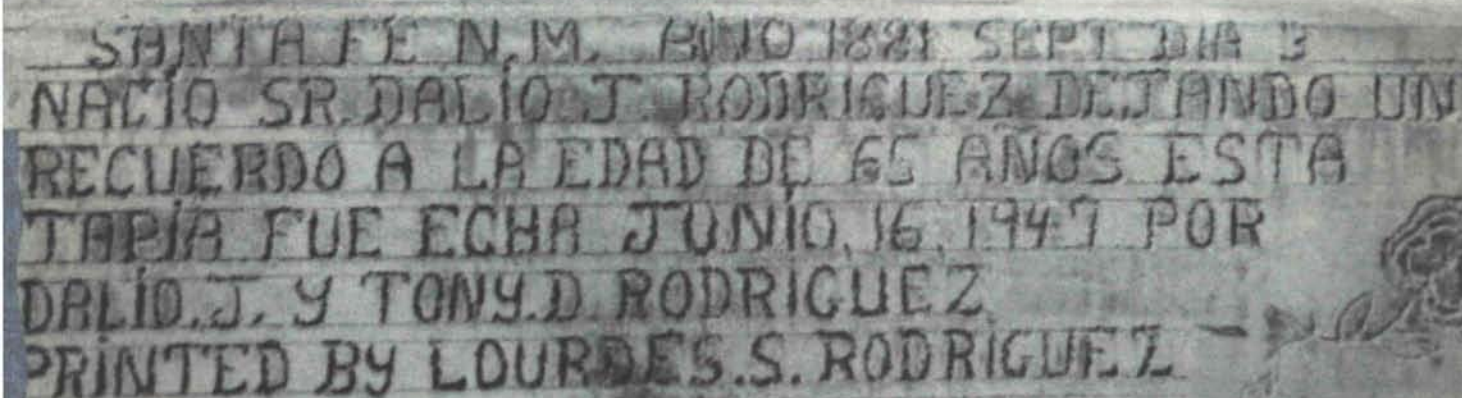 SANTA FE N.M. ANNO 1881 SEPT DIA 3
NACÍO SR. DALÍO. J RODRIGUEZ DEJANDO UN
RECUERDO A LA EDAD DE 65 AÑOS ESTA
TAPÍA FUE ECHA JUNÍO, 16, 1947 POR
DALÍO. J. Y TONY. D RODRIGUEZ
PRINTED BY LOURDES. S. RODRIGUEZ